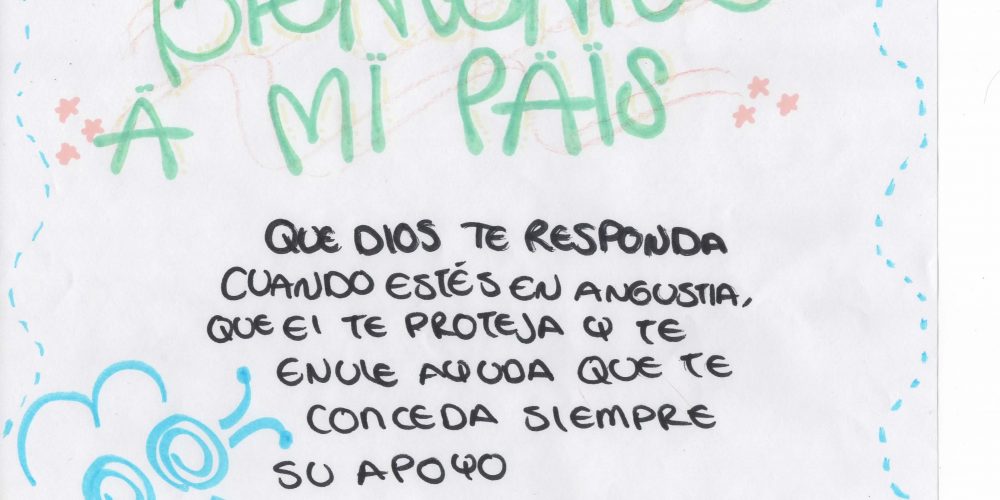 Ä MÏ PÄÏS
QUE DIOS TE RESPONDA
CUANDO ESTÉS EN ANGUSTIA,
QUE El TE PROTEJA Y TE
ENVIE AYUDA QUE TE
CONCEDA SIEMPRE
SU APOYO